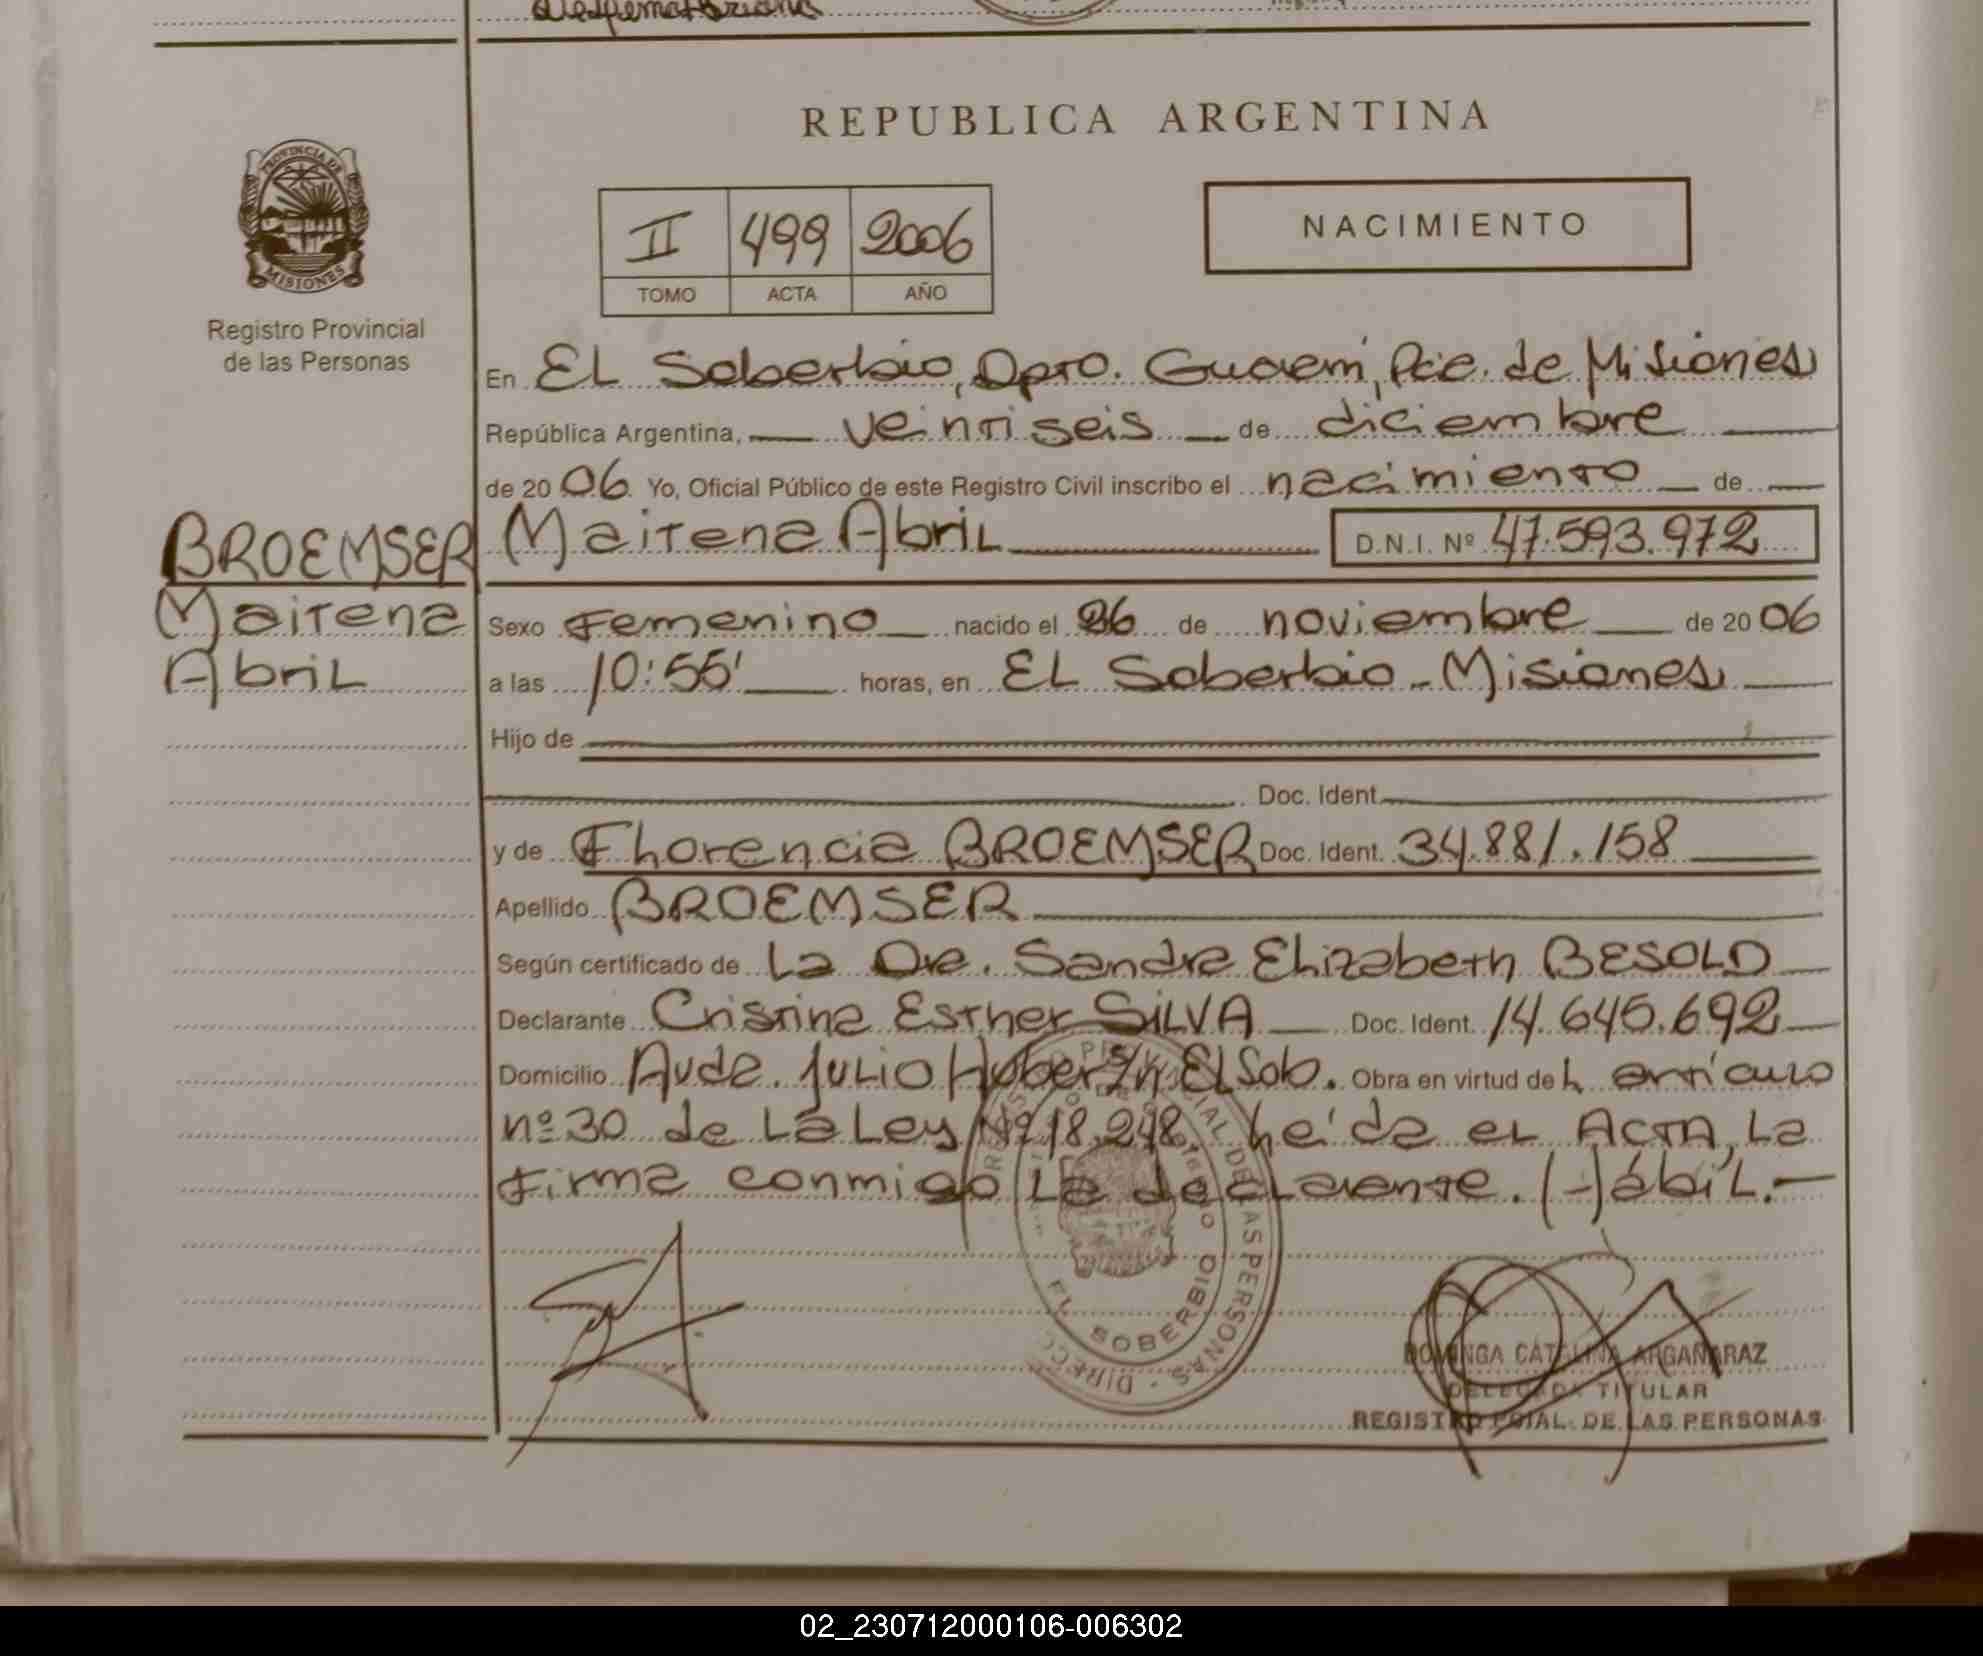 REPUBLICA ARGENTINA
PROVINCIA DE
MISIONES
Registro Provincial
de las Personas
II 499 2006
TOMO ACTA AÑO
NACIMIENTO
En EL Soberbio, Dpto. Guarani, Pcie. de Misiones
República Argentina, veintiseis de diciembre
de 2006 Yo, Oficial Público de este Registro Civil inscribo el nacimiento de
BROEMSER
Maitena
Abril
Maitena Abril D.N.I. Nº 47.593.972
Sexo Femenino nacido el 26 de noviembre de 2006
a las 10:55' horas, en EL Soberbio - Misiones
Hijo de
Doc. Ident.
y de Florencia BROEMSER Doc. Ident. 34.881.158
Apellido BROEMSER
Según certificado de La Dra. Sandra Elizabeth BESOLD
Declarante Cristina Esther SILVA Doc. Ident. 14.645.692
Domicilio Avda. Julio Huber S/n EL Sob. Obra en virtud del artículo
nº 30 de La Ley Nº 18.248 Leída el ACTA, La
firma conmigo La declarante. Hábil.-
EL SOBERBIO
DE LAS PERSONAS
DOMINGA CATALINA ARGAÑARAZ
DELEGADA TITULAR
REGISTRO PCIAL. DE LAS PERSONAS
02_230712000106-006302